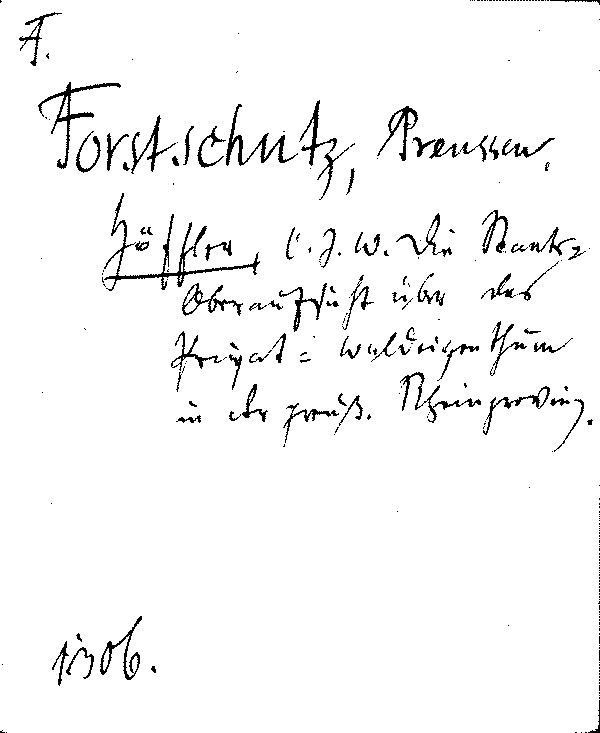 F.
Forstschutz, Preussen.
Höffler, C. J. W. Die Staats-
Oberaufsicht über das
Privat-Waldeigenthum
in der preuß. Rheinprovinz.
1306.